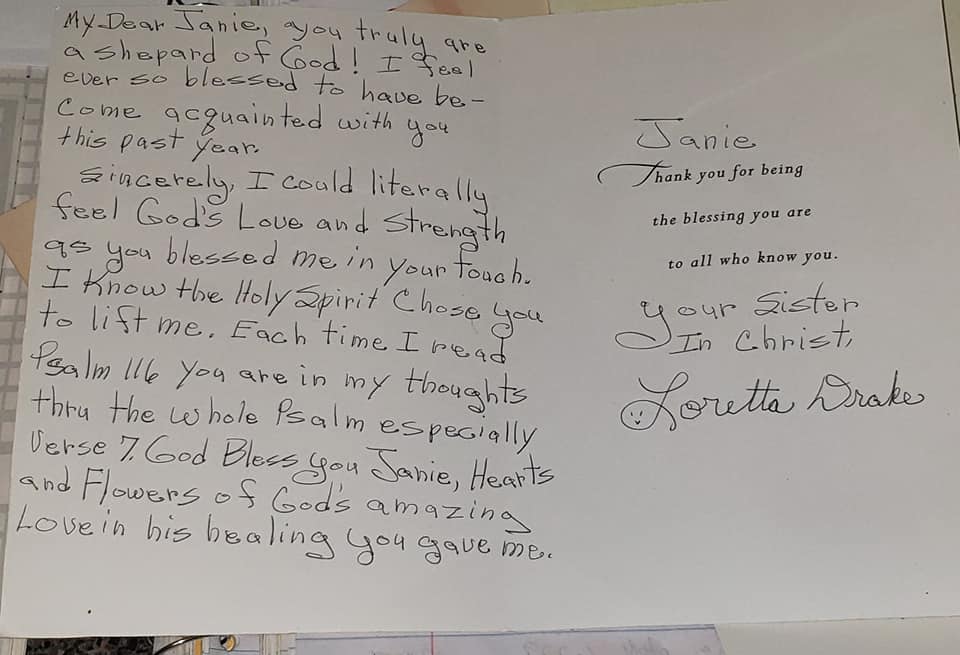 My Dear Janie, you truly are
a shepard of God! I feel
ever so blessed to have be-
come acquainted with you
this past year.
Sincerely, I could literally
feel God's Love and Strength
as you blessed me in your touch.
I Know the Holy Spirit Chose you
to lift me. Each time I read
Psalm 116 you are in my thoughts
thru the whole Psalm especially
Verse 7. God Bless you Janie, Hearts
and Flowers of God's amazing
Love in his healing you gave me.
Janie
Thank you for being
the blessing you are
to all who know you.
Your Sister
In Christ,
Loretta Drake